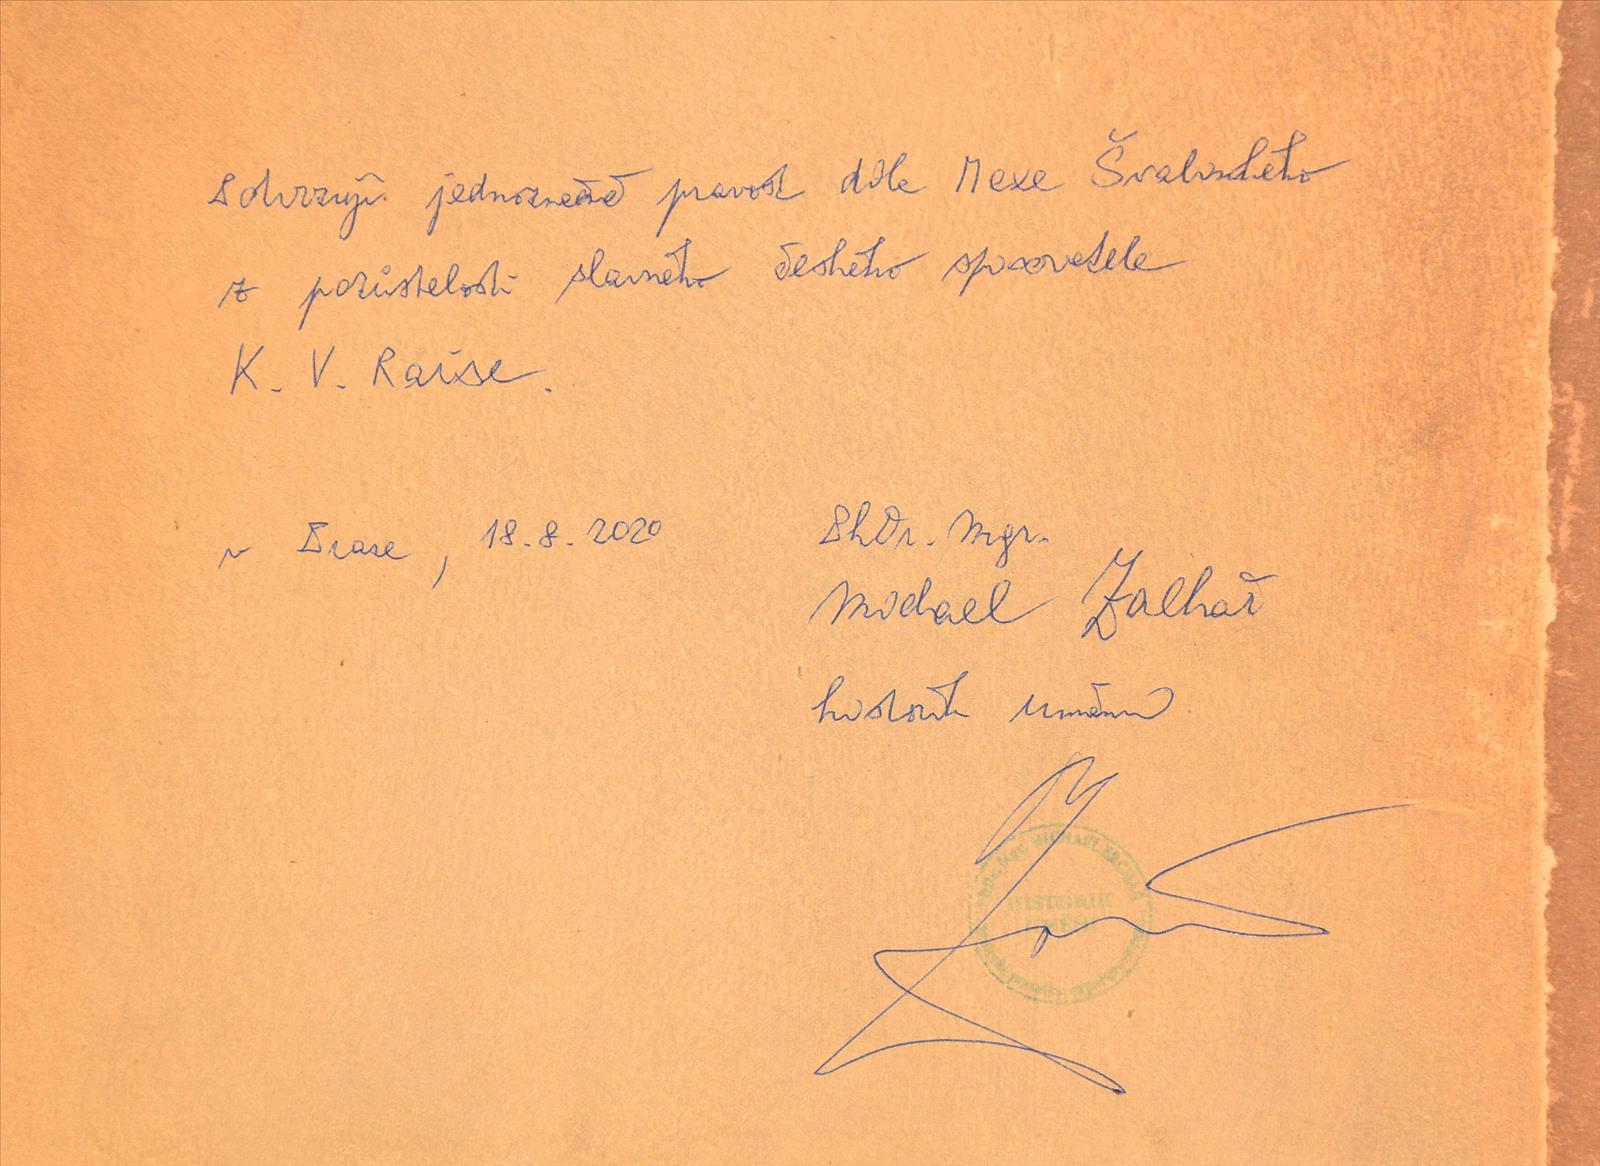 Potvrzuji jednoznačně pravost díla Maxe Švabinského
z pozůstalosti slavného českého spisovatele
K. V. Raise.
v Praze, 18.8.2020
PhDr. Mgr.
Michael Zachař
historik umění
HISTORIK